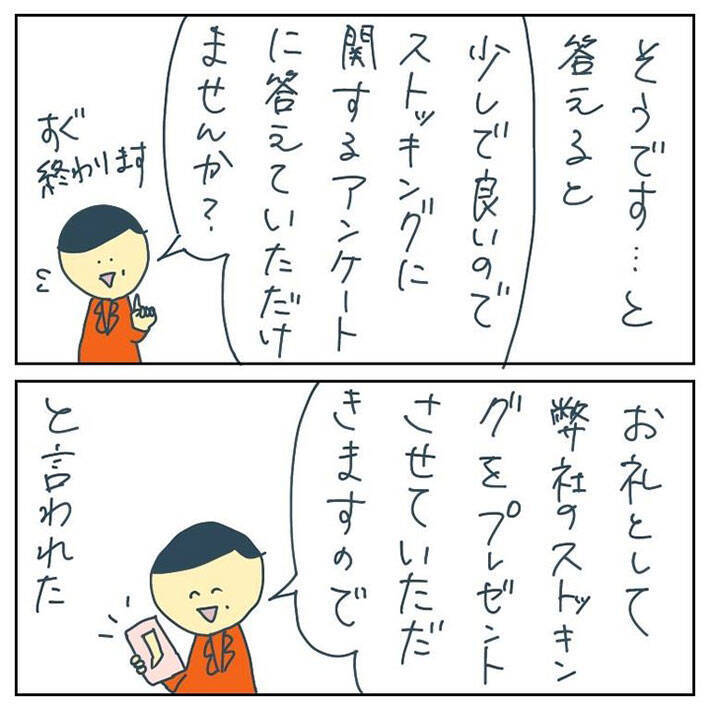 そうです…と
答えると
少しで良いので
ストッキングに
関するアンケート
に答えていただけ
ませんか?
すぐ
終わります
お礼として
弊社のストッキン
グをプレゼント
させていただ
きますので
と言われた